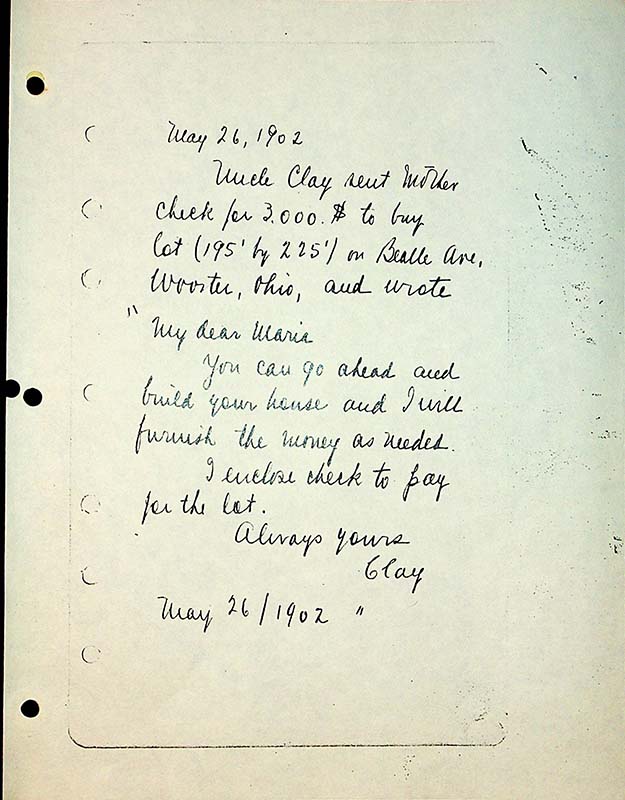 May 26, 1902
Uncle Clay sent Mother
check for 3.000.$ to buy
lot (195' by 225') on Bealle Ave.
Wooster, Ohio, and wrote
" My dear Maria
You can go ahead and
build your house and I will
furnish the money as needed.
I enclose check to pay
for the lot.
Always yours
Clay
May 26/1902 "